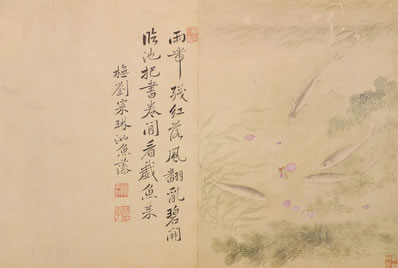 雨帶殘紅落風翻亂碧開
臨池把書卷閒看戲魚來
橅劉寀珠池魚藻